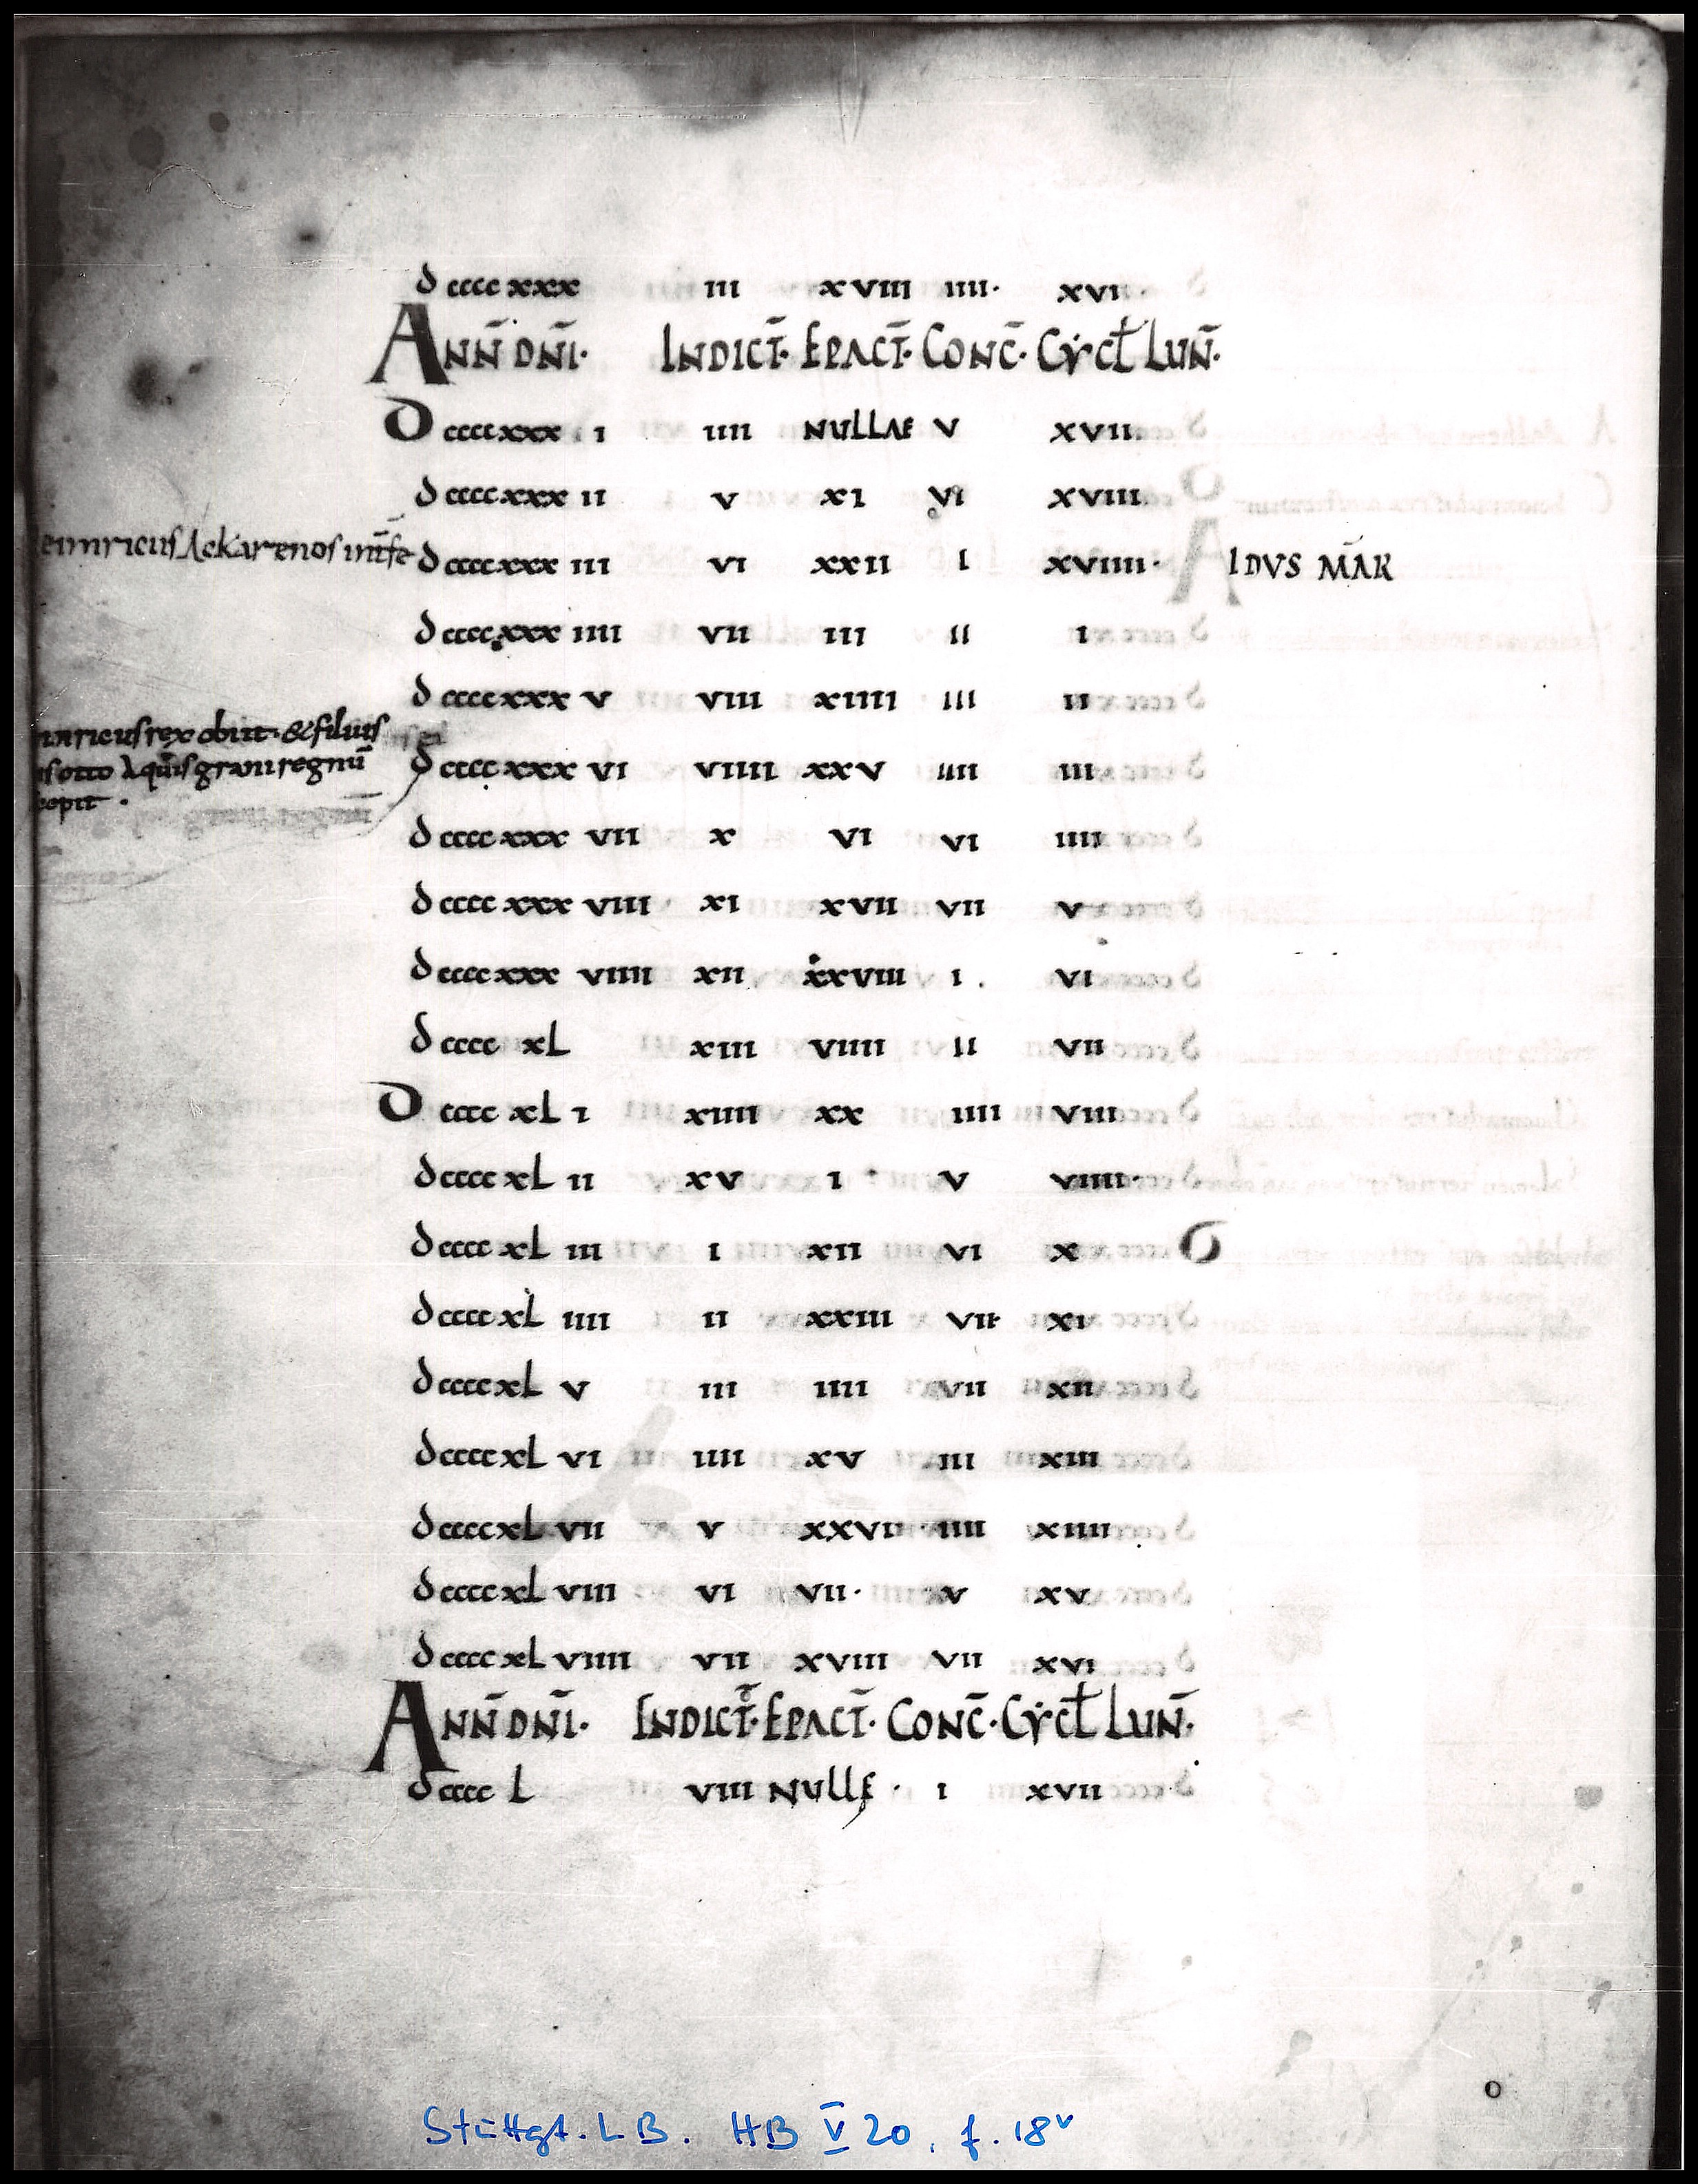 dcccc xxx III XVIII IIII· XVI·
ANN̄ DN̄I· INDICT̄· EPACT̄· CONC̄· CYCŁ LUN̄·
Dccccxxx I IIII NULLAE V XVII
dccccxxx II V XI VI XVIII
einricus Ackarenos
dccccxxx III VI XXII I XVIIII· IDVS MAR̄
dccccxxx IIII VII III II I
dccccxxx V VIII XIIII III II
inricus rex obiit· & filius
dccccxxx VI VIIII XXV IIII III
s otto Aquis grani regnū
cepit·
dccccxxx VII X VI VI IIII
dccccxxx VIII XI XVII VII V
dccccxxx VIIII XII XXVIII I VI
dcccc XL XIII VIIII II VII
Dcccc XL I XIIII XX IIII VIII
dcccc XL II XV I V VIIII·
dcccc XL III I XII VI X
dcccc XL IIII II XXIII VII XI
dccccXL V III IIII VII XII
dccccXL VI IIII XV III XIII
dccccXL VII V XXVII IIII XIIII
dccccXL VIII VI VII· V XV
dccccXL VIIII VII XVIII VII XVI
ANN̄ DN̄I· INDICT̄· EPACT̄· CONC̄· CYCŁ LUN̄·
dcccc L VIII NULLĘ · I XVII
Stuttgt. LB. HB V 20, f. 18v